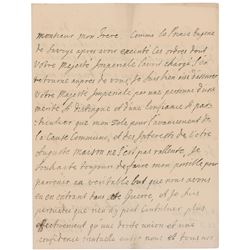 monsieur mon Frere. Comme le Prince Eugene
de Savoye apres avoir executé les ordres dont
votre Majesté Imperiale l'avoit chargé s'en
retourne aupres de vous, Je suis bien aise d'assurer
votre Majesté Imperiale par une personne d'un
merite si distingué et d'une confiance si par-
ticuliere que mon Zele pour l'avancement de
la Cause Commune, et des Interests de votre
Auguste maison ne s'est pas rallenti. Je
souhaite toujours de faire mon possible pour
parvenir au veritable but que nous avons
eu en entrant dans cette Guerre, et Je suis
persuadée que rien n'y peut contribuer plus
effectivement qu'une droite union et une
confidence mutuelle entre nous et tous nos